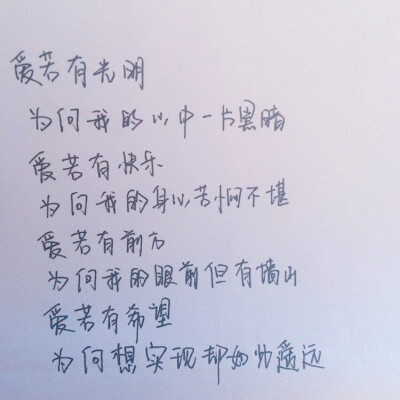 爱若有光明
为何我的心中一片黑暗
爱若有快乐
为何我的身心苦恼不堪
爱若有前方
为何我的眼前但有墙山
爱若有希望
为何想实现却如此遥远